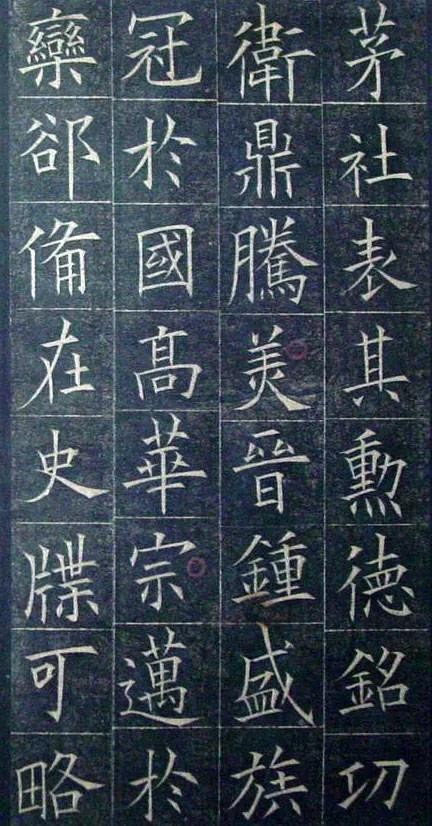 茅社表其勳德銘功
衛鼎騰美晉鍾盛族
冠於國高華宗邁於
欒郤備在史牒可略